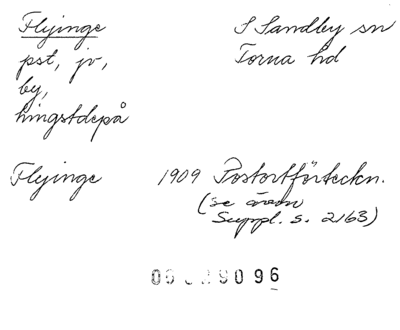 Flyinge S Sandby sn
pst, jv, Torna hd
by,
hingstdepå
Flyinge 1909 Postortförteckn.
(se även
Suppl. s. 2163)